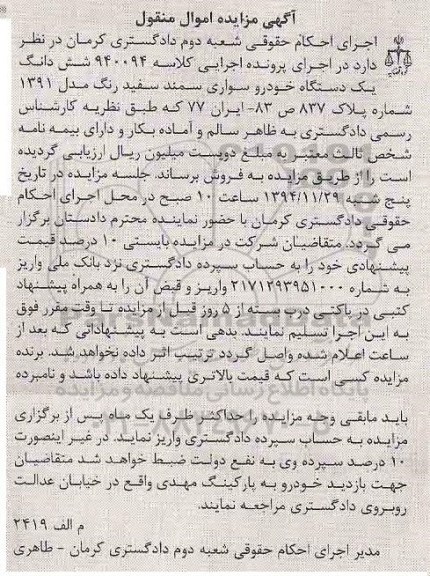 آگهی مزایده اموال منقول
اجرای احکام حقوقی شعبه دوم دادگستری کرمان در نظر
دارد در اجرای پرونده اجرایی کلاسه ۹۴۰۰۹۴ شش دانگ
یک دستگاه خودرو سواری سمند سفید رنگ مدل ۱۳۹۱
شماره پلاک ۸۳۷ ص ۸۳- ایران ۷۷ که طبق نظریه کارشناس
رسمی دادگستری به ظاهر سالم و آماده بکار و دارای بیمه نامه
شخص ثالث معتبر به مبلغ دویست میلیون ریال ارزیابی گردیده
است را از طریق مزایده به فروش برساند. جلسه مزایده در تاریخ
پنج شنبه ۱۳۹۴/۱۱/۲۹ ساعت ۱۰ صبح در محل اجرای احکام
حقوقی دادگستری کرمان با حضور نماینده محترم دادستان برگزار
می گردد. متقاضیان شرکت در مزایده بایستی ۱۰ درصد قیمت
پیشنهادی خود را به حساب سپرده دادگستری نزد بانک ملی واریز
به شماره ۲۱۷۱۲۹۳۹۵۱۰۰۰ واریز و قبض آن را به همراه پیشنهاد
کتبی در پاکتی درب بسته از ۵ روز قبل از مزایده تا وقت مقرر فوق
به این اجرا تسلیم نمایند. بدهی است به پیشنهاداتی که بعد از
ساعت اعلام شده واصل گردد ترتیب اثر داده نخواهد شد. برنده
مزایده کسی است که قیمت بالاتری پیشنهاد داده باشد و نامبرده
پایگاه اطلاع رسانی مناقصه و مزایده
باید مابقی وجه مزایده را حداکثر ظرف یک ماه پس از برگزاری
مزایده به حساب سپرده دادگستری واریز نماید. در غیر اینصورت
۱۰ درصد سپرده وی به نفع دولت ضبط خواهد شد متقاضیان
جهت بازدید خودرو به پارکینگ مهدی واقع در خیابان عدالت
روبروی دادگستری مراجعه نمایند.
م الف ۲۴۱۹
مدیر اجرای احکام حقوقی شعبه دوم دادگستری کرمان - طاهری